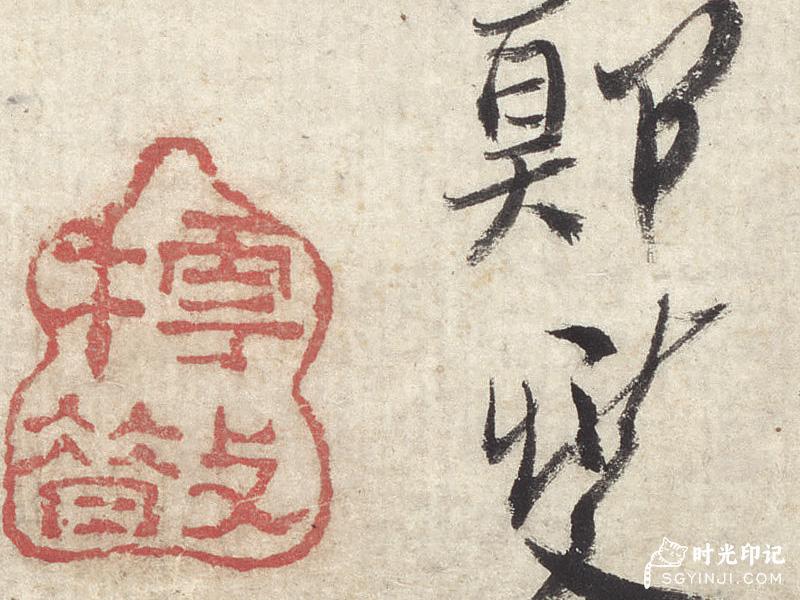 鄭燮
樗散
时光印记
SGYINJI.COM